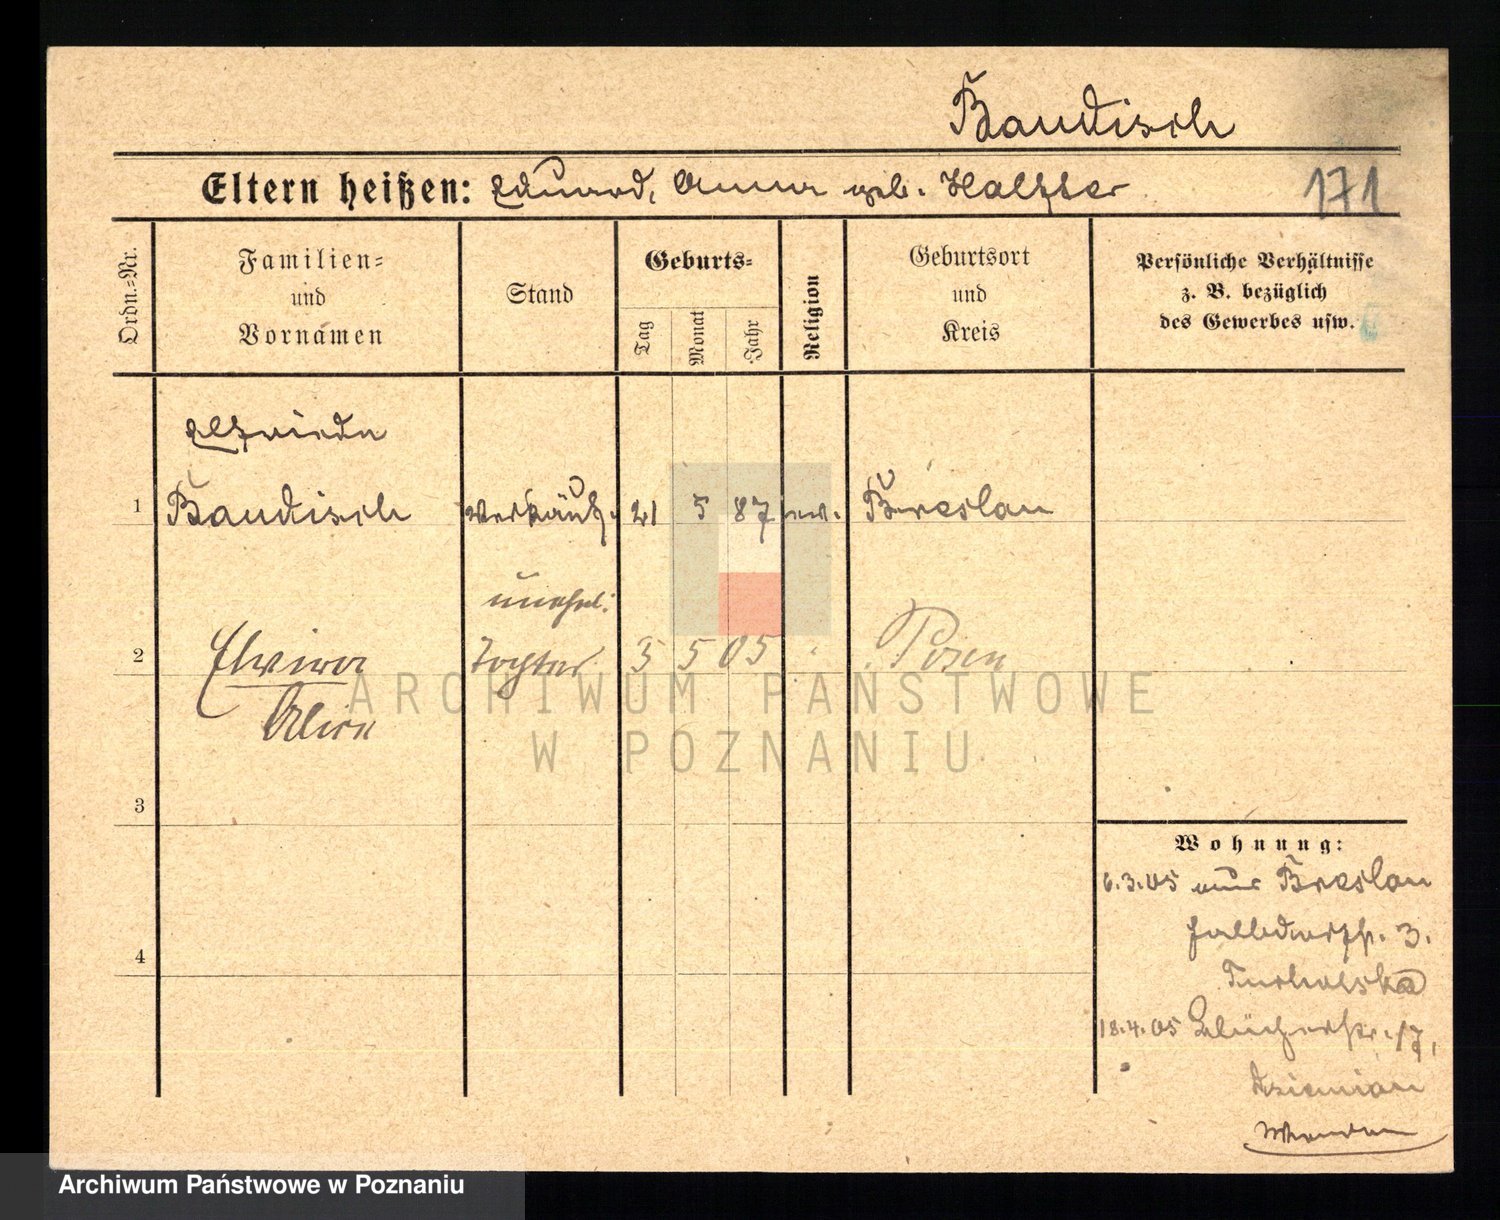 Baudisch
Eltern heißen: Eduard, Anna geb.
171
Ordn.-Nr.
Familien-
und
Vornamen
Stand
Geburts-
Tag
Monat
Jahr
Religion
Geburtsort
und
Kreis
Persönliche Verhältnisse
z. B. bezüglich
des Gewerbes usw.
Elfriede
1 Baudisch Verkäuf. 21 5 87 ev. Breslau
unehel.
2 Elwira Tochter 3 5 05 Posen
Alice
ARCHIWUM PAŃSTWOWE
W POZNANIU
3
4
Wohnung:
6.3.05 aus Breslau
3.
18.4.05 Blücherstr. 17,
Archiwum Państwowe w Poznaniu